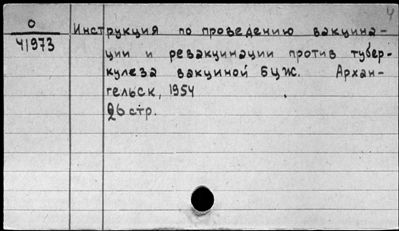 4
О
41973
Инструкция по проведению вакцина-
ции и ревакцинации против тубер-
кулеза вакциной БЦЖ. Архан-
гельск, 1954
26 стр.